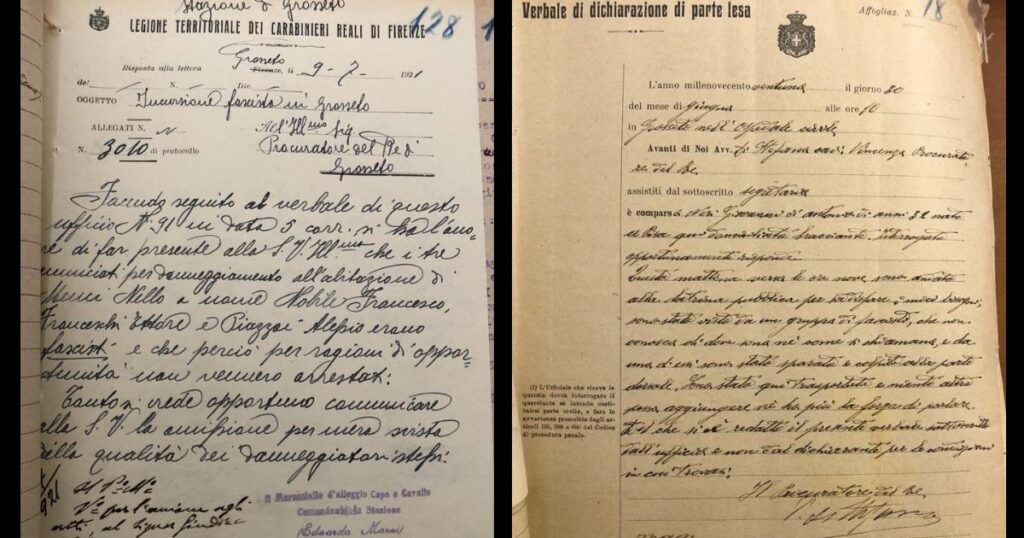 Stazione di Grosseto
LEGIONE TERRITORIALE DEI CARABINIERI REALI DI FIRENZE
128
Grosseto
Firenze, li 9-7- 1921
Risposta alla lettera
del N. Div.
OGGETTO Incursione fascista in Grosseto
ALLEGATI N.
N. 3010 di protocollo
All'Ill.mo Sig.
Procuratore del Re di
Grosseto
Facendo seguito al verbale di questo
ufficio N. 91 in data 5 corr. si ha l'ono=
re di far presente alla S.V. Ill.ma che i tre
denunciati per danneggiamento all'abitazione di
Menci Nello a nome Nobile Francesco,
Franceschi Ettore e Piazzai Alessio erano
fascisti e che perciò per ragioni di oppor=
tunità non vennero arrestati:
Tanto si crede opportuno comunicare
alla S.V. la omissione per mera svista
della qualità dei danneggiatori stessi:
921
Il Maresciallo d'alloggio Capo a Cavallo
Comandante la Stazione
(Edoardo Marsi)
Verbale di dichiarazione di parte lesa
Affogliaz. N. 18
L'anno millenovecento ventuno il giorno 30
del mese di giugno alle ore 10
in Grosseto nell'ospedale civile
Avanti di Noi Avv. Di Stefano cav. Vincenzo Procurato
re del Re
assistiti dal sottoscritto segretario
è comparso Neri Giovanni di Antonio di anni 32 nato
a Pisa qui domiciliato bracciante, interrogato
opportunamente risponde
Questa mattina verso le ore nove, sono andato
alla latrina pubblica per soddisfare i miei bisogni,
sono stato visto da un gruppo di fascisti, che non
conosco di dove sono né come si chiamano, e da
uno di essi sono stato sparato e colpito alla parte
dorsale. Sono stato qui trasportato e niente altro
posso aggiungere né ho più la forza di parlare
Del che si è redatto il presente verbale sottoscritto
dall'ufficio e non dal dichiarante per le condizioni
in cui trovasi
Il Procuratore del Re
(1) L'Ufficiale che riceve la
querela dovrà interrogare il
querelante se intenda costi-
tuirsi parte civile, e fare le
avvertenze prescritte dagli ar-
ticoli 155, 299 e 600 del Codice
di procedura penale.